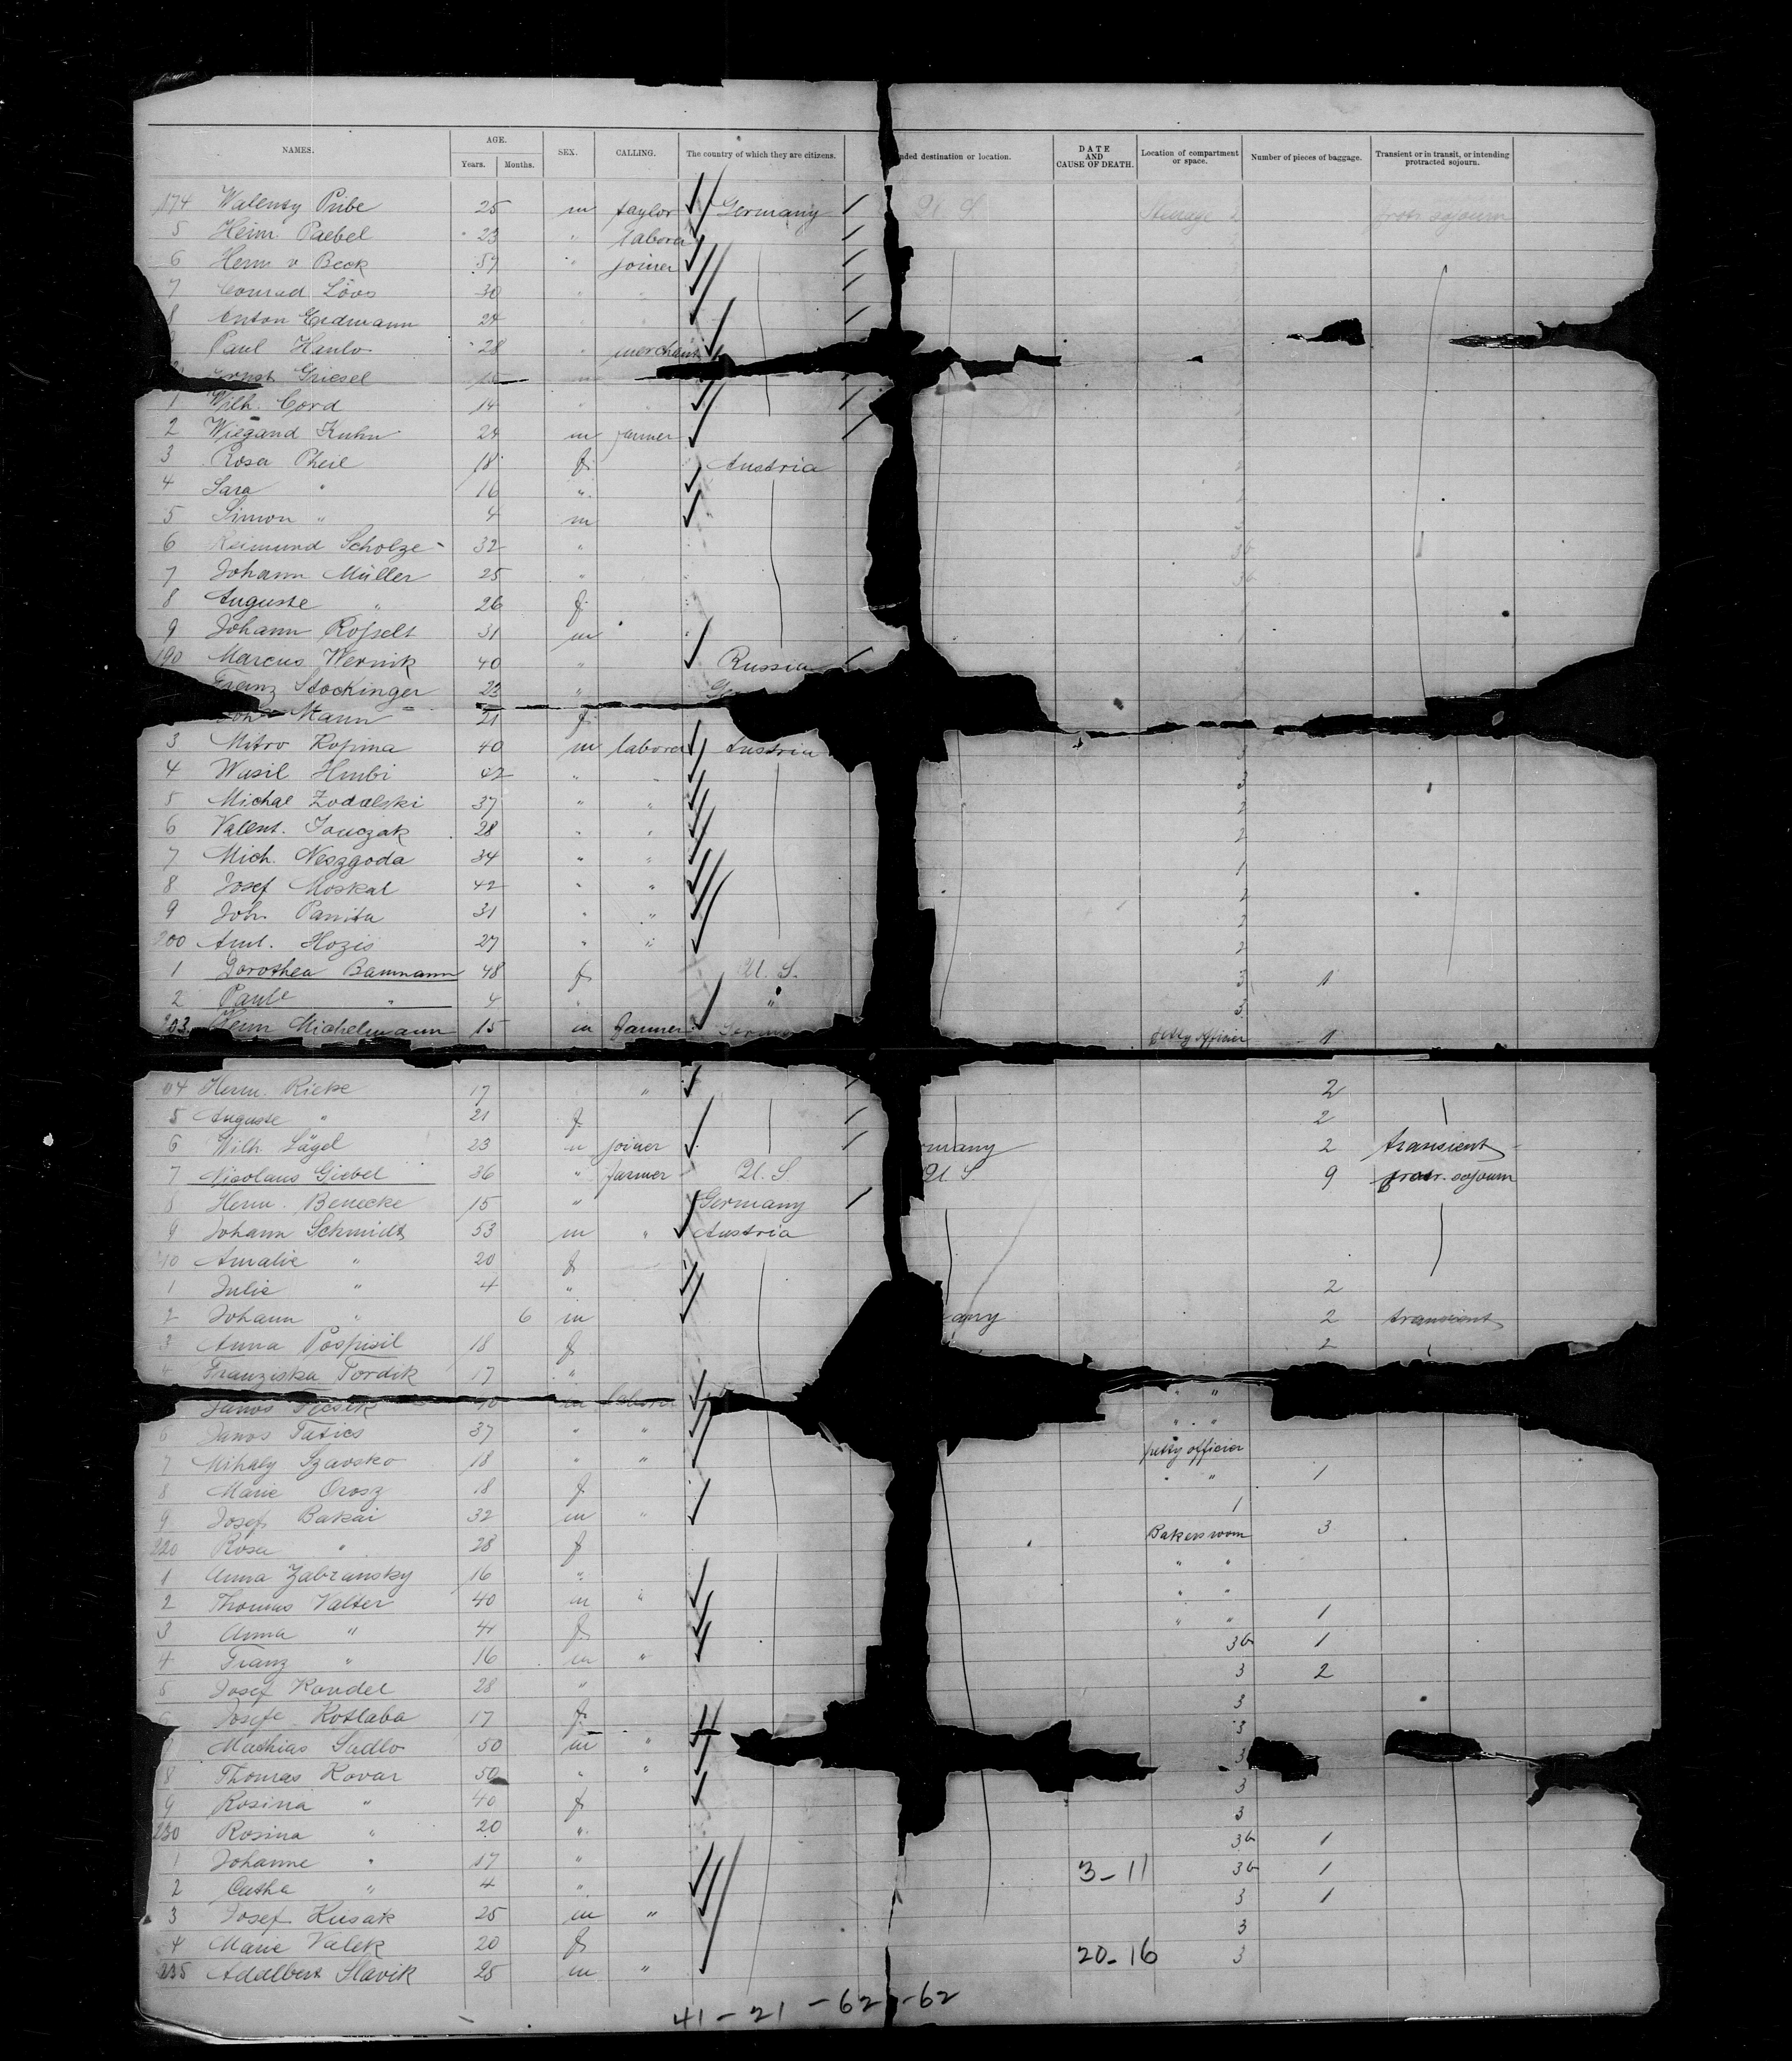 NAMES. AGE. SEX. CALLING. The country of which they are citizens. nded destination or location. DATE AND CAUSE OF DEATH. Location of compartment or space. Number of pieces of baggage. Transient or in transit, or intending protracted sojourn.
Years. Months.
174 Walenty Pribe 25 m taylor Germany U. S. Steerage 2 protr sojourn
5 Heinr. Paebel 23 " laborer
6 Herm v Beck 57 " joiner
7 Conrad Löos 30 " "
8 Anton Erdmann 24 " "
Paul Hanlo 28 " merchant
Ernst Griesel 15 m
1 Wilh. Cord 14 "
2 Wiegand Kuhn 24 m farmer
3 Rosa Pheil 18 f. Austria
4 Sara " 16 "
5 Simon " 4 m
6 Reimund Scholze 32 " 3b
7 Johann Müller 25 " 3b
8 Auguste " 26 f.
9 Johann Roßelt 31 m
190 Marcus Wernik 40 " Russia
Franz Stockinger 23 " Ge
Joh Mann 21 f.
3 Mitro Kopina 40 m laborer Austria 3
4 Wasil Hmbi 42 " " 3
5 Michal Zodalski 37 " " 2
6 Valent. Jouczak 28 " " 2
7 Mich. Neszgoda 34 " " 1
8 Josef Moskal 42 " " 2
9 Joh. Panita 31 " " 2
200 Ant. Hozis 27 " " 2
1 Dorothea Baumann 48 f U. S. 3 1
2 Paule " 4 " " 3
203 Heinr Michelmann 15 m farmer Germ petty officier 1
04 Herm. Rieke 17 " 2
5 Auguste " 21 f. 2
6 Wilh. Sägel 23 m joiner rmany 2 transient
7 Nicolaus Giebel 36 " farmer U. S. U. S 9 protr. sojourn
8 Herm. Benecke 15 " Germany
9 Johann Schmidt 53 m " Austria
10 Amalie " 20 f
1 Julie " 4 " 2
2 Johann " 6 m any 2 transient
3 Anna Pospisil 18 f 2
4 Franziska Tordik 17 "
Janos 40 m laborer " "
6 Janos Tatics 37 " " " "
7 Mihaly Szavsko 18 " " petty officier
8 Marie Orosz 18 f. " " 1
9 Josef Bakai 32 m " 1
220 Rosa " 28 f Bakers room 3
1 Anna Zabransky 16 " " "
2 Thomas Valter 40 m " " "
3 Anna " 4 f. " " 1
4 Franz " 16 m " 3b 1
5 Josef Kandel 28 " 3 2
6 Josefe Kotlaba 17 f. 3
Mathias Sadlo 50 m " 3
8 Thomas Kovar 50 " " 3
9 Rosina " 40 f 3
230 Rosina " 20 " 3b 1
1 Johanne " 17 " 3-11 3b 1
2 Catha " 4 " 3 1
3 Josef Husak 25 m " 3
4 Marie Valek 20 f 20-16 3
235 Adalbert Slavik 25 m "
41-21 -62 -62